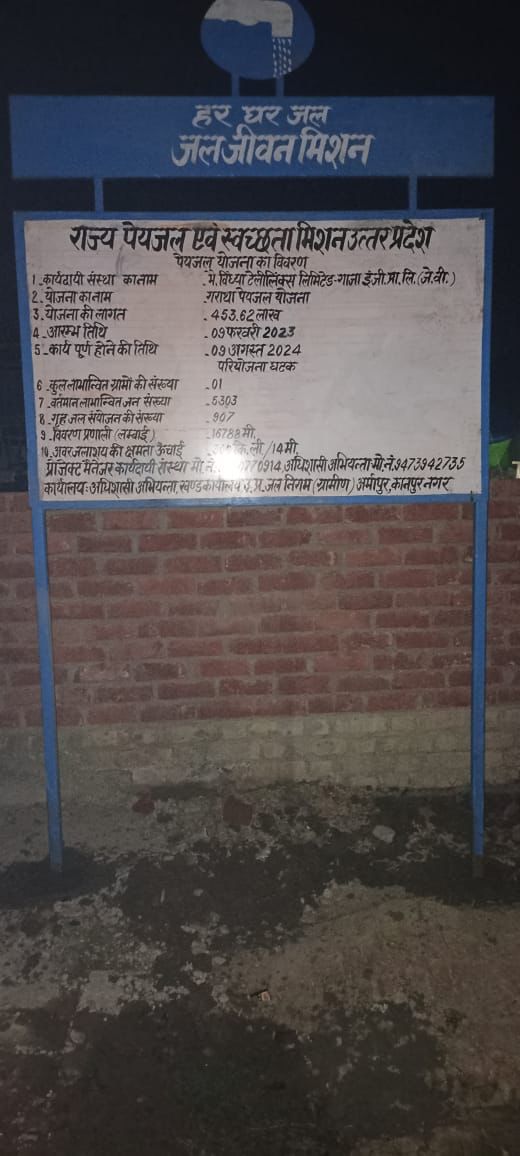 हर घर जल
जल जीवन मिशन
राज्य पेयजल एवं स्वच्छता मिशन उत्तर प्रदेश
पेयजल योजना का विवरण
1. कार्यदायी संस्था का नाम - मे. विंध्या टेलीलिंक्स लिमिटेड-गाजा इंजी.प्रा.लि.(जे.वी.)
2. योजना का नाम - गराथा पेयजल योजना
3. योजना की लागत - 453.62 लाख
4. आरम्भ तिथि - 09 फरवरी 2023
5. कार्य पूर्ण होने की तिथि - 09 अगस्त 2024
परियोजना घटक
6. कुल लाभान्वित ग्रामों की संख्या - 01
7. वर्तमान लाभान्वित जन संख्या - 5303
8. गृह जल संयोजन की संख्या - 907
9. विवरण प्रणाली (लम्बाई) - 16788 मी.
10. अवर जलाशय की क्षमता ऊंचाई कि.ली./14 मी.
प्रोजेक्ट मैनेजर कार्यदायी संस्था मो.नं. 770914, अधिशासी अभियन्ता मो.नं. 9473942735
कार्यालय: अधिशासी अभियन्ता, खण्ड कार्यालय उ.प्र. जल निगम (ग्रामीण) अमीपुर, कानपुर नगर